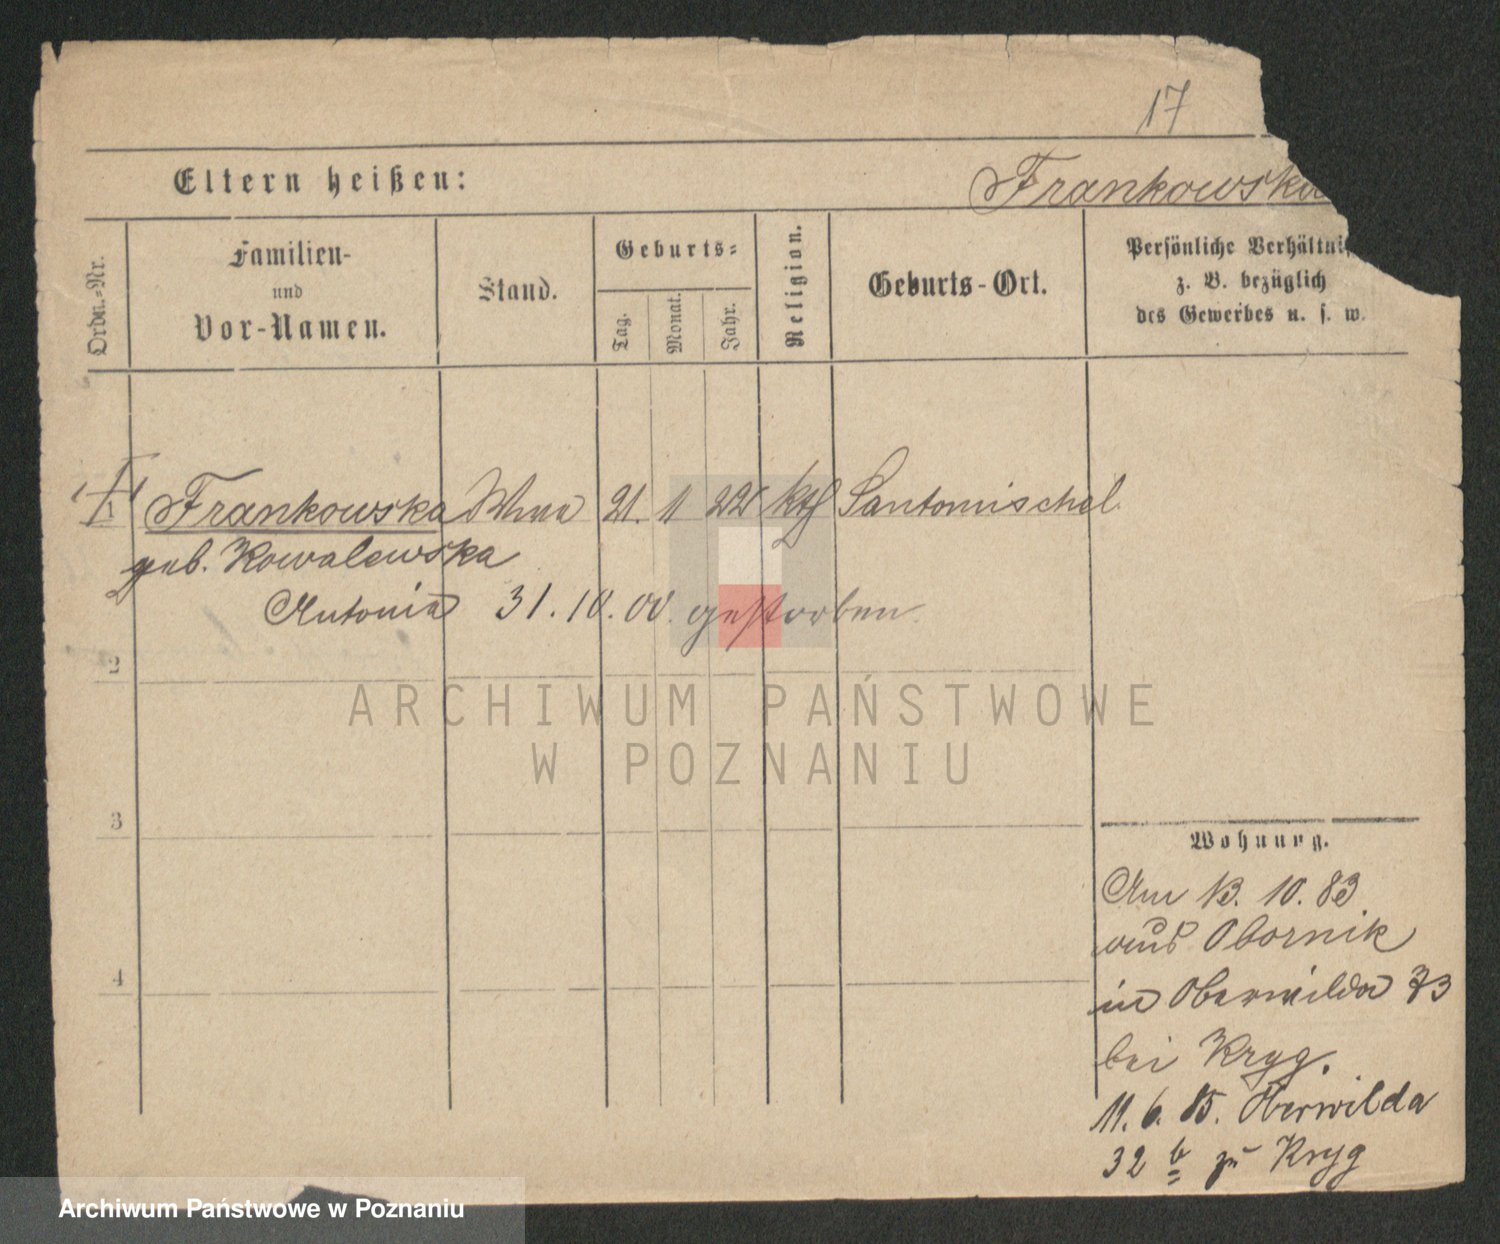 17
Eltern heißen:
Frankowska
Ordn.-Nr.
Familien-
und
Vor-Namen.
Stand.
Geburts-
Tag.
Monat.
Jahr.
Religion.
Geburts-Ort.
Persönliche Verhältnis
z. B. bezüglich
des Gewerbes u. s. w.
1 Frankowska Wwe 21. 1 22 kth Santomischel
geb. Kowalewska
Antonia 31. 10. 00. gestorben
2
ARCHIWUM PAŃSTWOWE
W POZNANIU
3
Wohnung.
Am 13. 10. 83
aus Obornik
4
in Oberwilda 73
bei Kryg.
11. 6. 85. Oberwilda
32 b zu Kryg
Archiwum Państwowe w Poznaniu